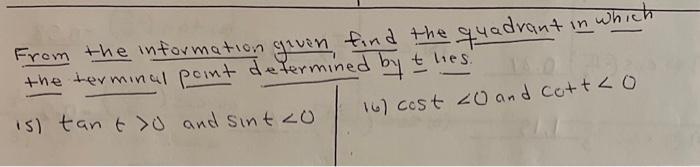 From the information given, find the quadrant in which
the terminal point determined by t lies.
15) tan t >0 and sint <0
16) cost <0 and cott <0